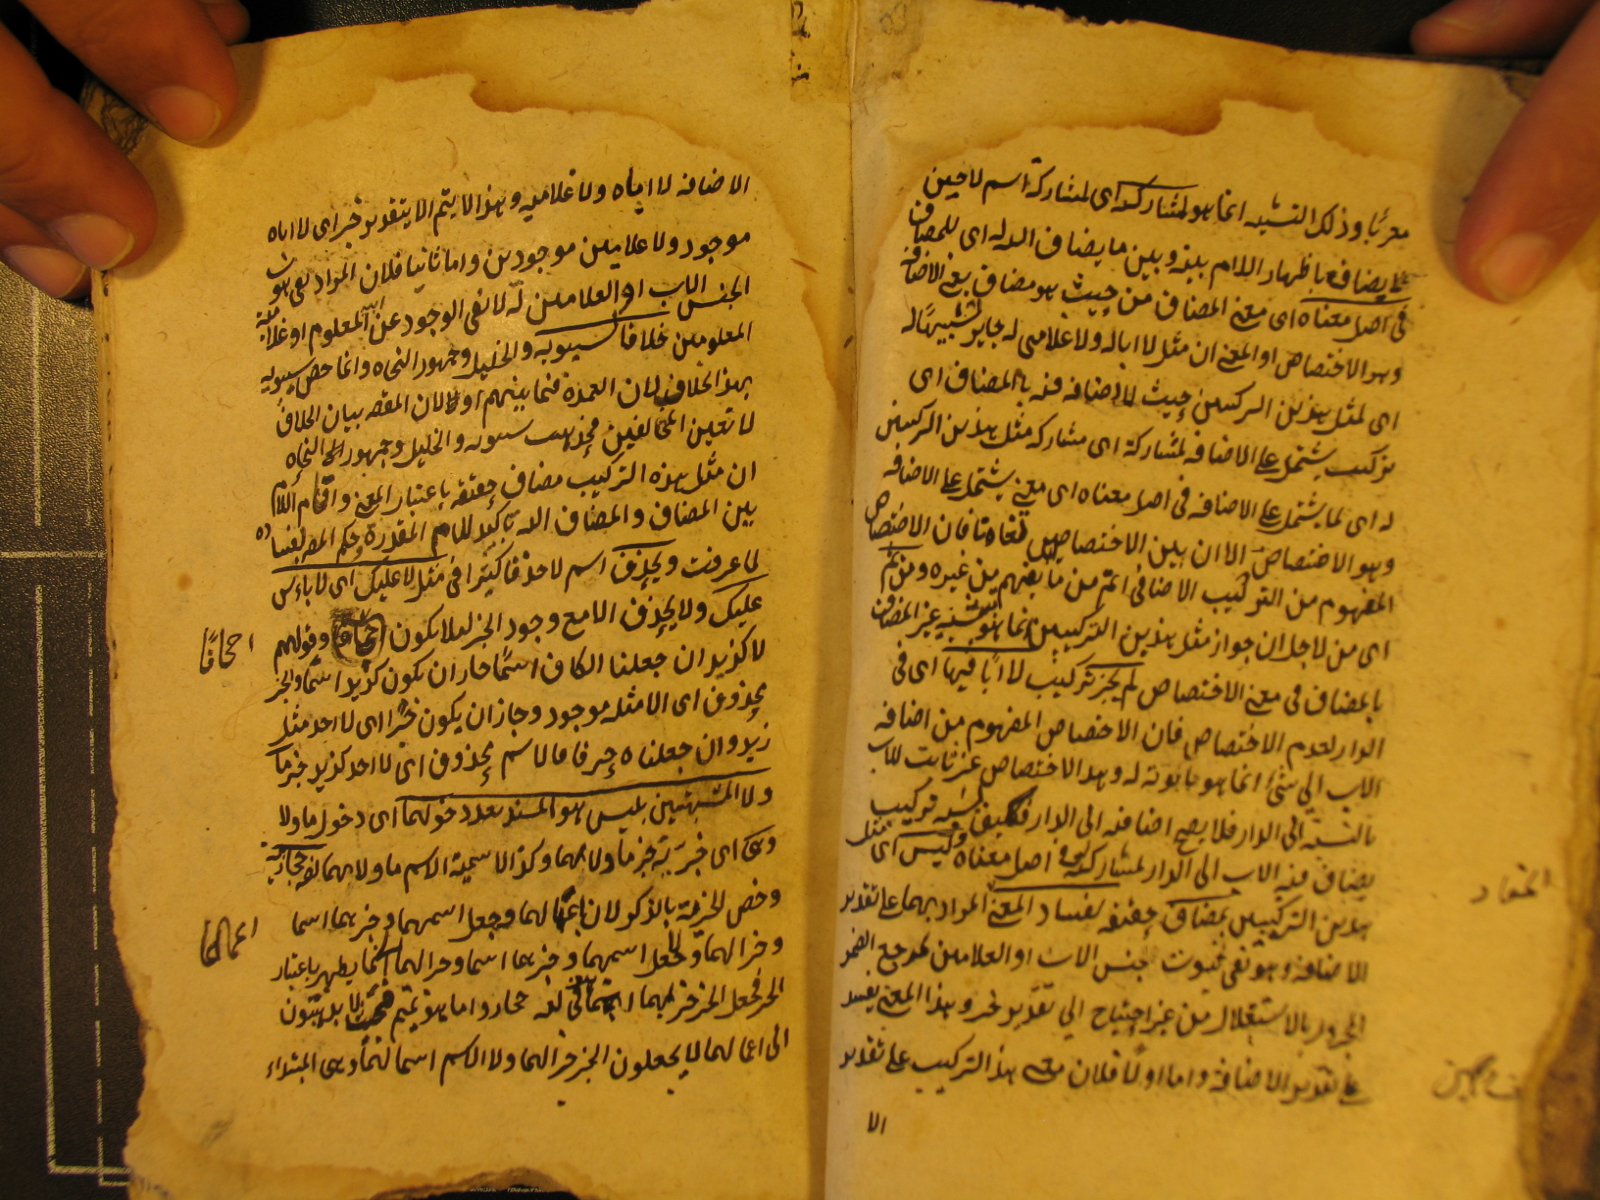 معربا وذلك التشبيه انما هو لمشاركته اى لمشاركة اسم لا حين
يضاف باظهار اللام بينه وبين ما يضاف اليه له اى للمضاف
فى اصل معناه اى معنى المضاف من حيث هو مضاف يعنى الاضافة
وهو الاختصاص او المعنى ان مثل لا ابا له ولا غلامى له جايز تشبيها له
اى لمثل هذين التركيبين حيث لا اضافه فيه بالمضاف اى
بتركيب يشتمل على الاضافه لمشاركة اى مشاركه مثل هذين التركيبين
له اى لما يشتمل على الاضافه فى اصل معناه اى معنى يشتمل على الاضافه
وهو الاختصاص الا ان بين الاختصاصين تفاوتا فان الاختصاص
المفهوم من التركيب الاضافى اتم من ما يفهم من غيره ومن ثم
اى من لاجل ان جواز مثل هذين التركيبين انما هو بتشبيه غير المضاف
بالمضاف فى معنى الاختصاص لم يجز تركيب لا ابا فيها اى فى
الدار لعدم الاختصاص فان الاختصاص المفهوم من اضافه
الاب الى شئ انما هو بابوته له وهذا الاختصاص غير ثابت للاب
بالنسبة الى الدار فلا يصح اضافته الى الدار فكيف يشبه تركيب
يضاف فيه الاب الى الدار لمشاركته له فى اصل معناه وليس اى مثل
هذين التركيبين بمضاف حقيقة لفساد المعنى المراد بهما على تقدير
الاضافه وهو نفى ثبوت جنس الاب او الغلامين لمرجع الضمير
المجرور بالاستقلال من غير احتياج الى تقدير خبر وهذا المعنى يفسد
على تقدير الاضافه واما اولا فلان معنى هذا التركيب على تقدير
الا
الاضافه لا اباه ولا غلاميه وهذا لا يتم الا بتقدير خبر اى لا اباه
موجود ولا غلاميه موجودين واما ثانيا فلان المراد نفى ثبوت
الجنس الاب او الغلامين له لا نفى الوجود عن ابيه المعلوم او غلاميه
المعلومين خلافا لسيبويه والخليل وجمهور النحاه وانما خص سيبويه
بهذا الخلاف لان العمدة فيما بينهم او لان المقصد بيان الخلاف
لا تعين المخالفين فمذهب سيبويه والخليل وجمهور النحاه
ان مثل هذه التركيب مضاف حقيقه باعتبار المعنى واقحام اللام
بين المضاف والمضاف اليه تاكيد للام المقدرة وحكم المص بفساده
لما عرفت ويحذف اسم لا حذفا كثيرا فى مثل لا عليك اى لا باس
عليك ولا يحذف الا مع وجود الخبر لئلا يكون اجحافا وقولهم
لا كزيد ان جعلنا الكاف اسما جاز ان يكون كزيد اسما والخبر
محذوف اى لا مثله موجود وجاز ان يكون خبرا اى لا احد مثل
زيد وان جعلناه حرفا فالاسم محذوف اى لا احد كزيد خبر ما
ولا المشبهتين بليس هو المسند بعد دخولهما اى دخول ما ولا
وهى اى خبرية خبر ما ولا لهما وكذا اسمية الاسم ما ولا لهما لغه حجازيه
وخص الخبرية بالذكر لان اعمالهما وجعل اسمهما وخبرهما اسما
وخبرا لهما ولا جعل اسمهما وخبرهما اسما وخبرا لهما انما يظهر باعتبار
الخبر فجعل الخبر خبرا لهما انما هو فى لغه حجاز واما بنو تميم لا يذهبون
الى اعمالهما لا يجعلون الخبر خبرا لهما ولا الاسم اسما لهما وهى المبتداء
اجحافا
اعمالهما